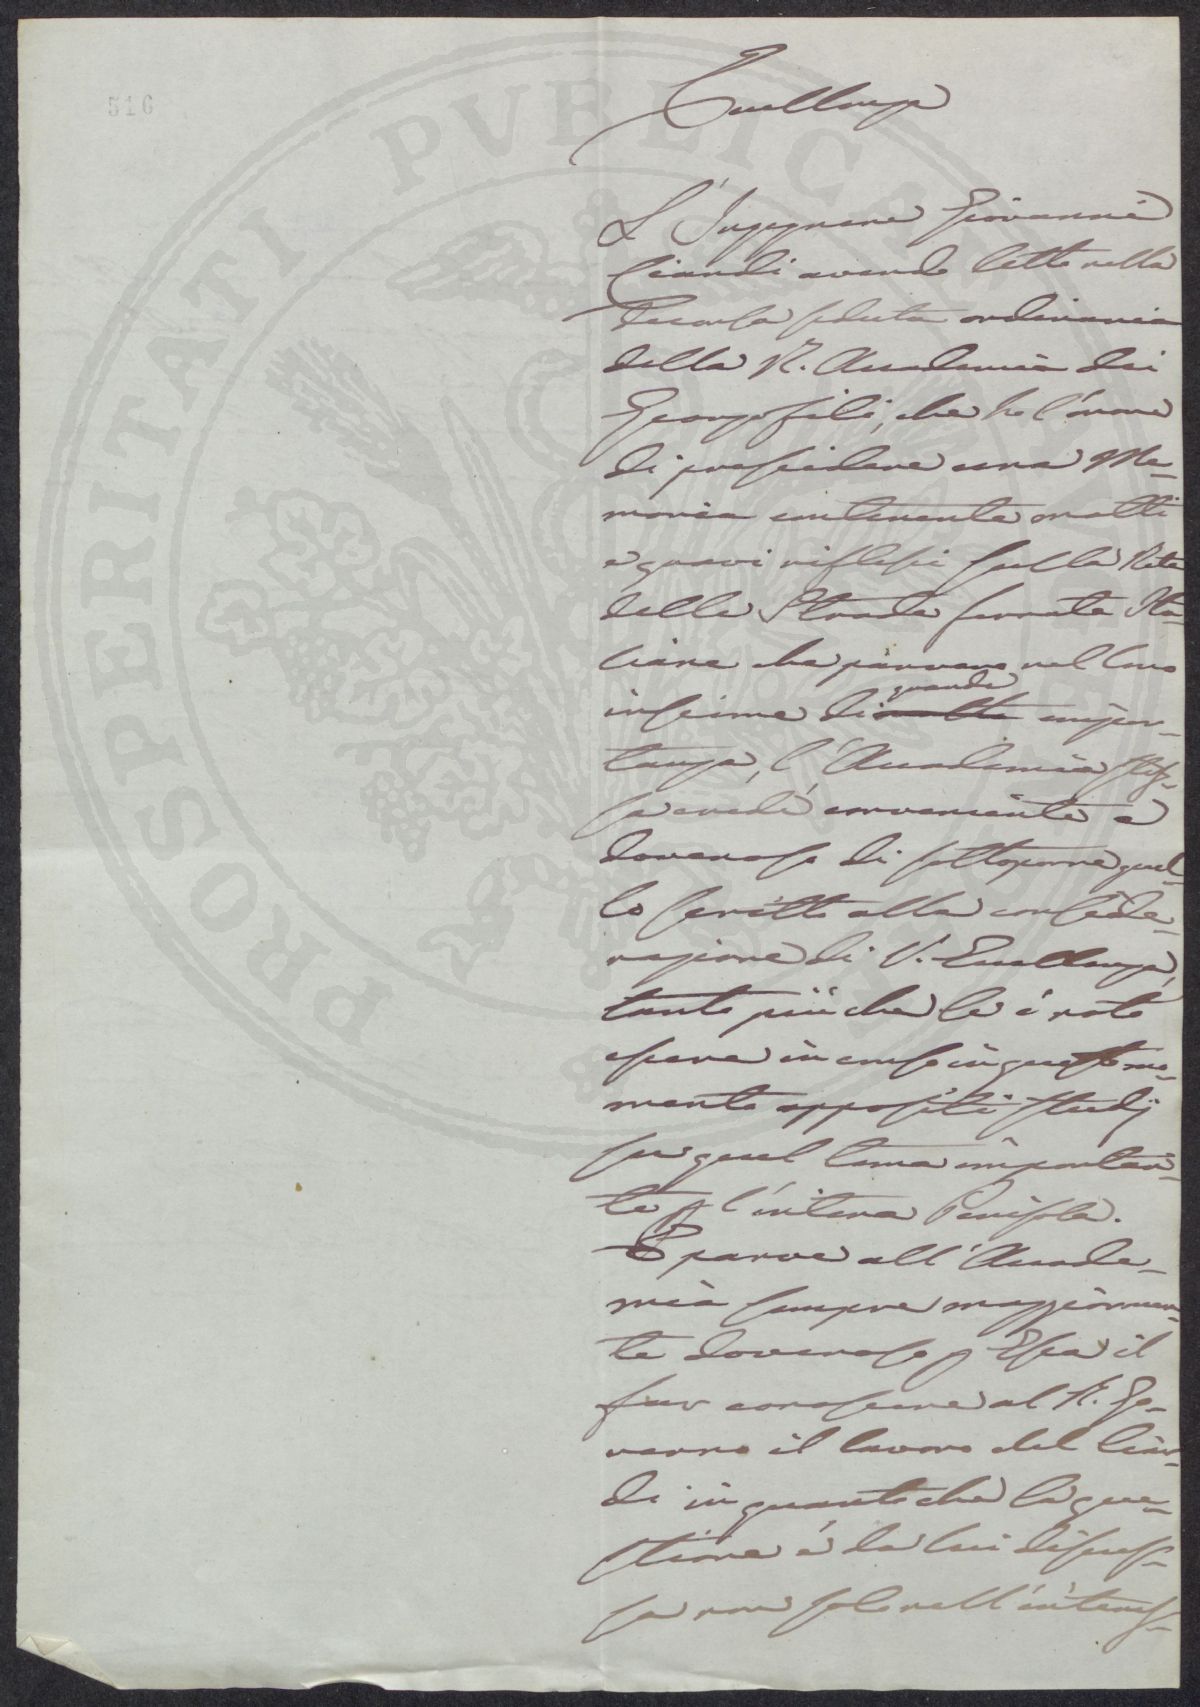 516
Eccellenza
L'Ingegnere Giovanni
Ciardi avendo letto nella
decorsa seduta ordinaria
della R. Accademia dei
Georgofili, che ho l'onore
di presiedere una Me-
moria contenente molti
e gravi riflessi sulla Rete
delle Strade ferrate Ita-
liane che parvero nel loro
insieme di molta grande impor-
tanza, l'Accademia stes-
sa credè conveniente e
doveroso di sottoporre quel-
lo scritto alla conside-
razione di V. Eccellenza,
tanto più che le è noto
essere in corso in questo mo-
mento appositi studj
su quel tema importan-
te p l'intera Penisola.
E parve all'Accade-
mia sempre maggiormen-
te doveroso p Essa il
far conoscere al R. Go-
verno il lavoro del Ciar-
di in quanto che la que-
stione è da lui discus-
sa non solo nell'interes-
PROSPERITATI PVBLICAE AVGENDAE